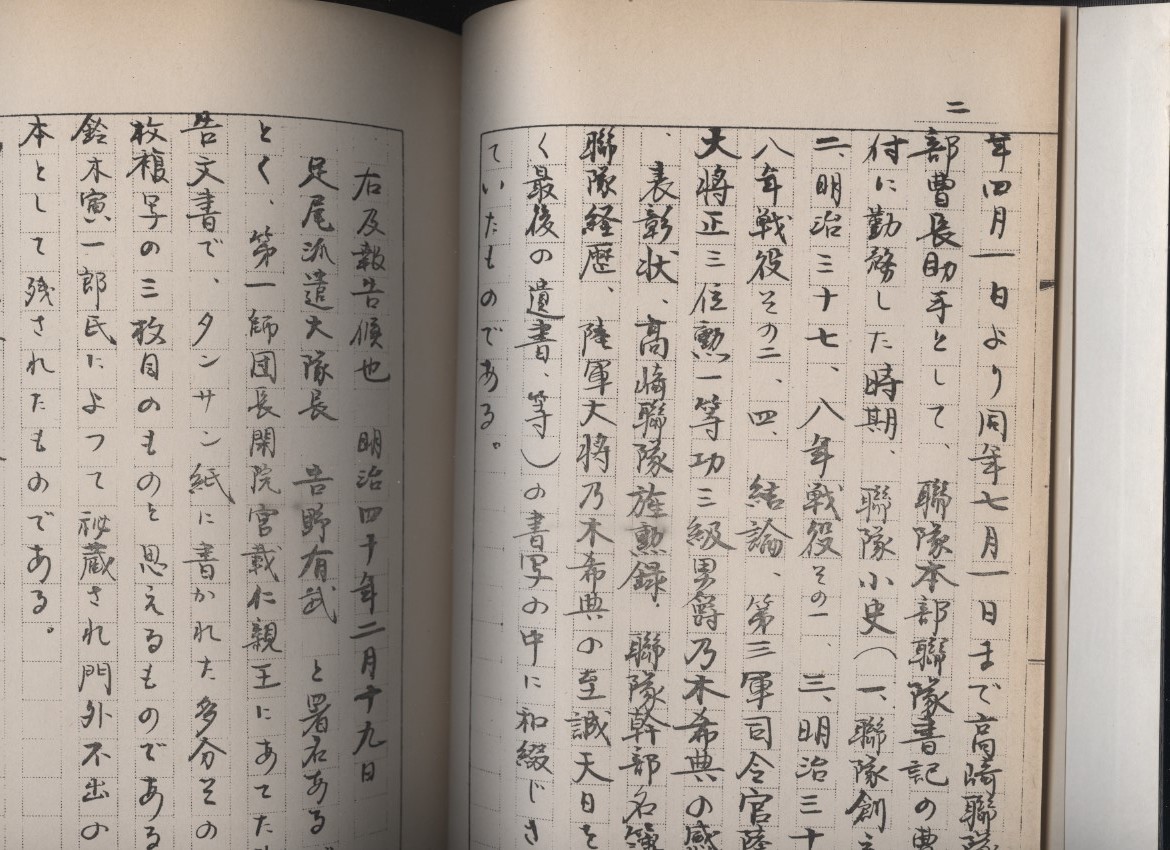 二
年四月一日より同年七月一日まで高崎聯隊
部曹長助手として、聯隊本部聯隊書記の曹
付に勤務した時期、聯隊小史(一、聯隊創立
二、明治三十七、八年戦役その一、三、明治三十
八年戦役その二、四、結論、第三軍司令官陸
大将正三位勲一等功三級男爵乃木希典の感
、表彰状、高崎聯隊旌勲録、聯隊幹部名簿
聯隊経歴、陸軍大将乃木希典の至誠天日を
く最後の遺書、等)の書写の中に和綴じさ
ていたものである。
右及報告候也 明治四十年二月十九日
足尾派遣大隊長 告野有武 と署名ある
とく、第一師団長閑院宮載仁親王にあてた
告文書で、タンサン紙に書かれた多分その
枚複写の三枚目のものと思えるものである
鈴木寅一郎氏によつて秘蔵され門外不出の
本として残されたものである。